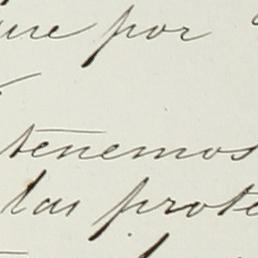 que por
tenemos
las prote